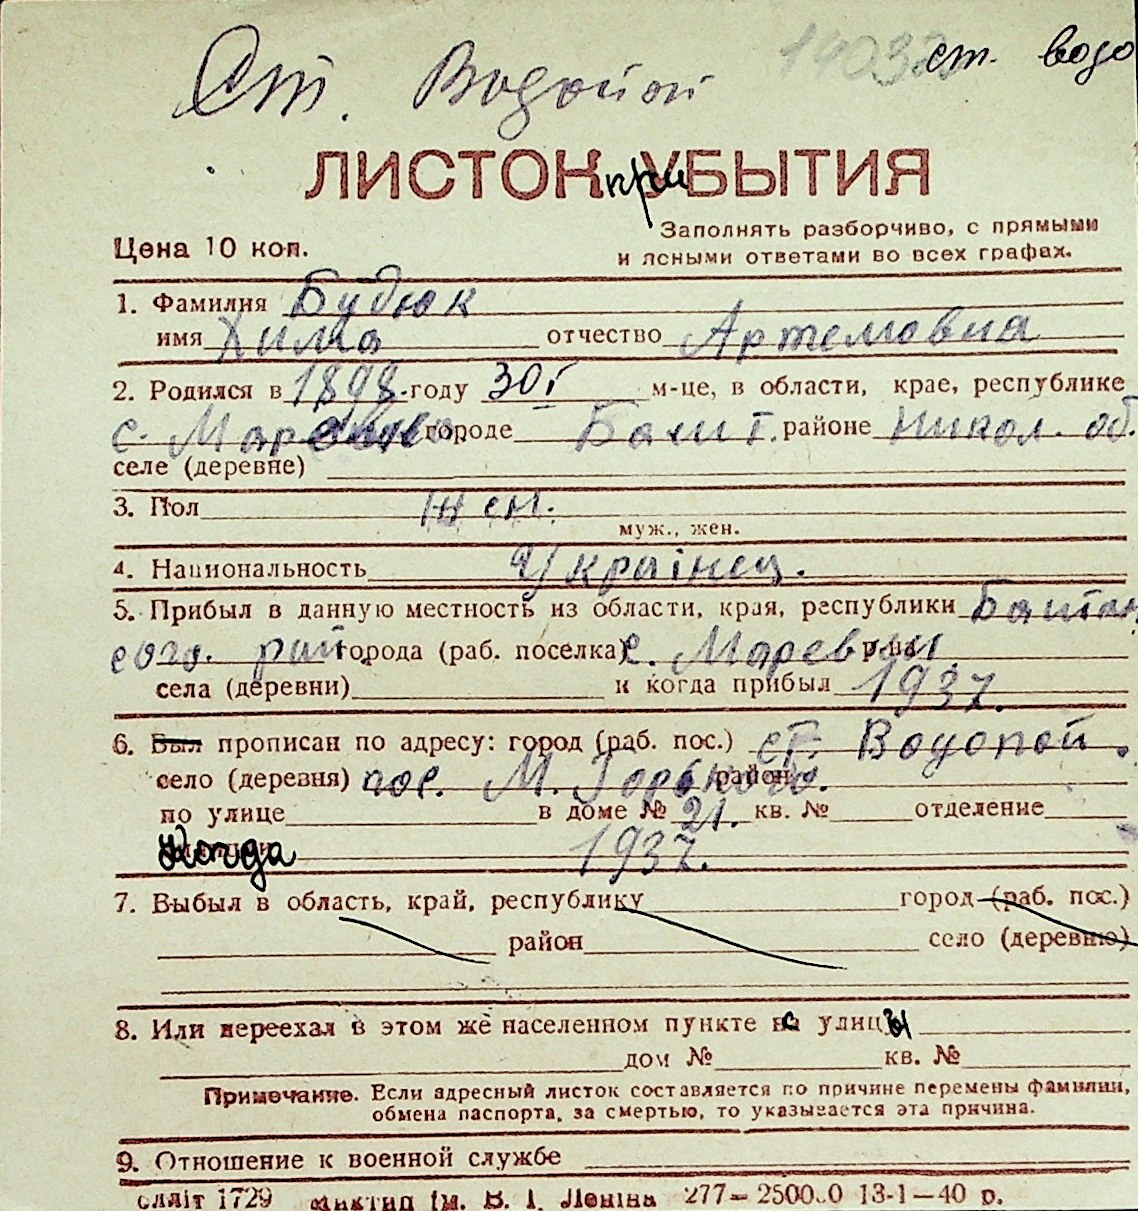 ст. водо
Ст. Водопой
ЛИСТОК при УБЫТИЯ
Цена 10 коп.
Заполнять разборчиво, с прямыми
и ясными ответами во всех графах.
1. Фамилия Будюк
имя Хима отчество Артемовна
2. Родился в 1898 году 30 м-це, в области, крае, республике
с. городе Башт. районе Никол. об.
селе (деревне)
3. Пол жен.
муж., жен.
4. Национальность Українец.
5. Прибыл в данную местность из области, края, республики Баштан
ского. рай. города (раб. поселка) с. Маревки р-на
села (деревни) и когда прибыл 1937.
6. Был прописан по адресу: город (раб. пос.) ст. Водопой.
село (деревня) пос. М. Горького. район
по улице в доме № 21. кв. № отделение
Когда 1937.
7. Выбыл в область, край, республику город (раб. пос.)
район село (деревню)
8. Или переехал в этом же населенном пункте с улицы
дом № кв. №
Примечание. Если адресный листок составляется по причине перемены фамилии,
обмена паспорта, за смертью, то указывается эта причина.
9. Отношение к военной службе
1729 ім. В. І. Леніна 277— 13-1—40 р.